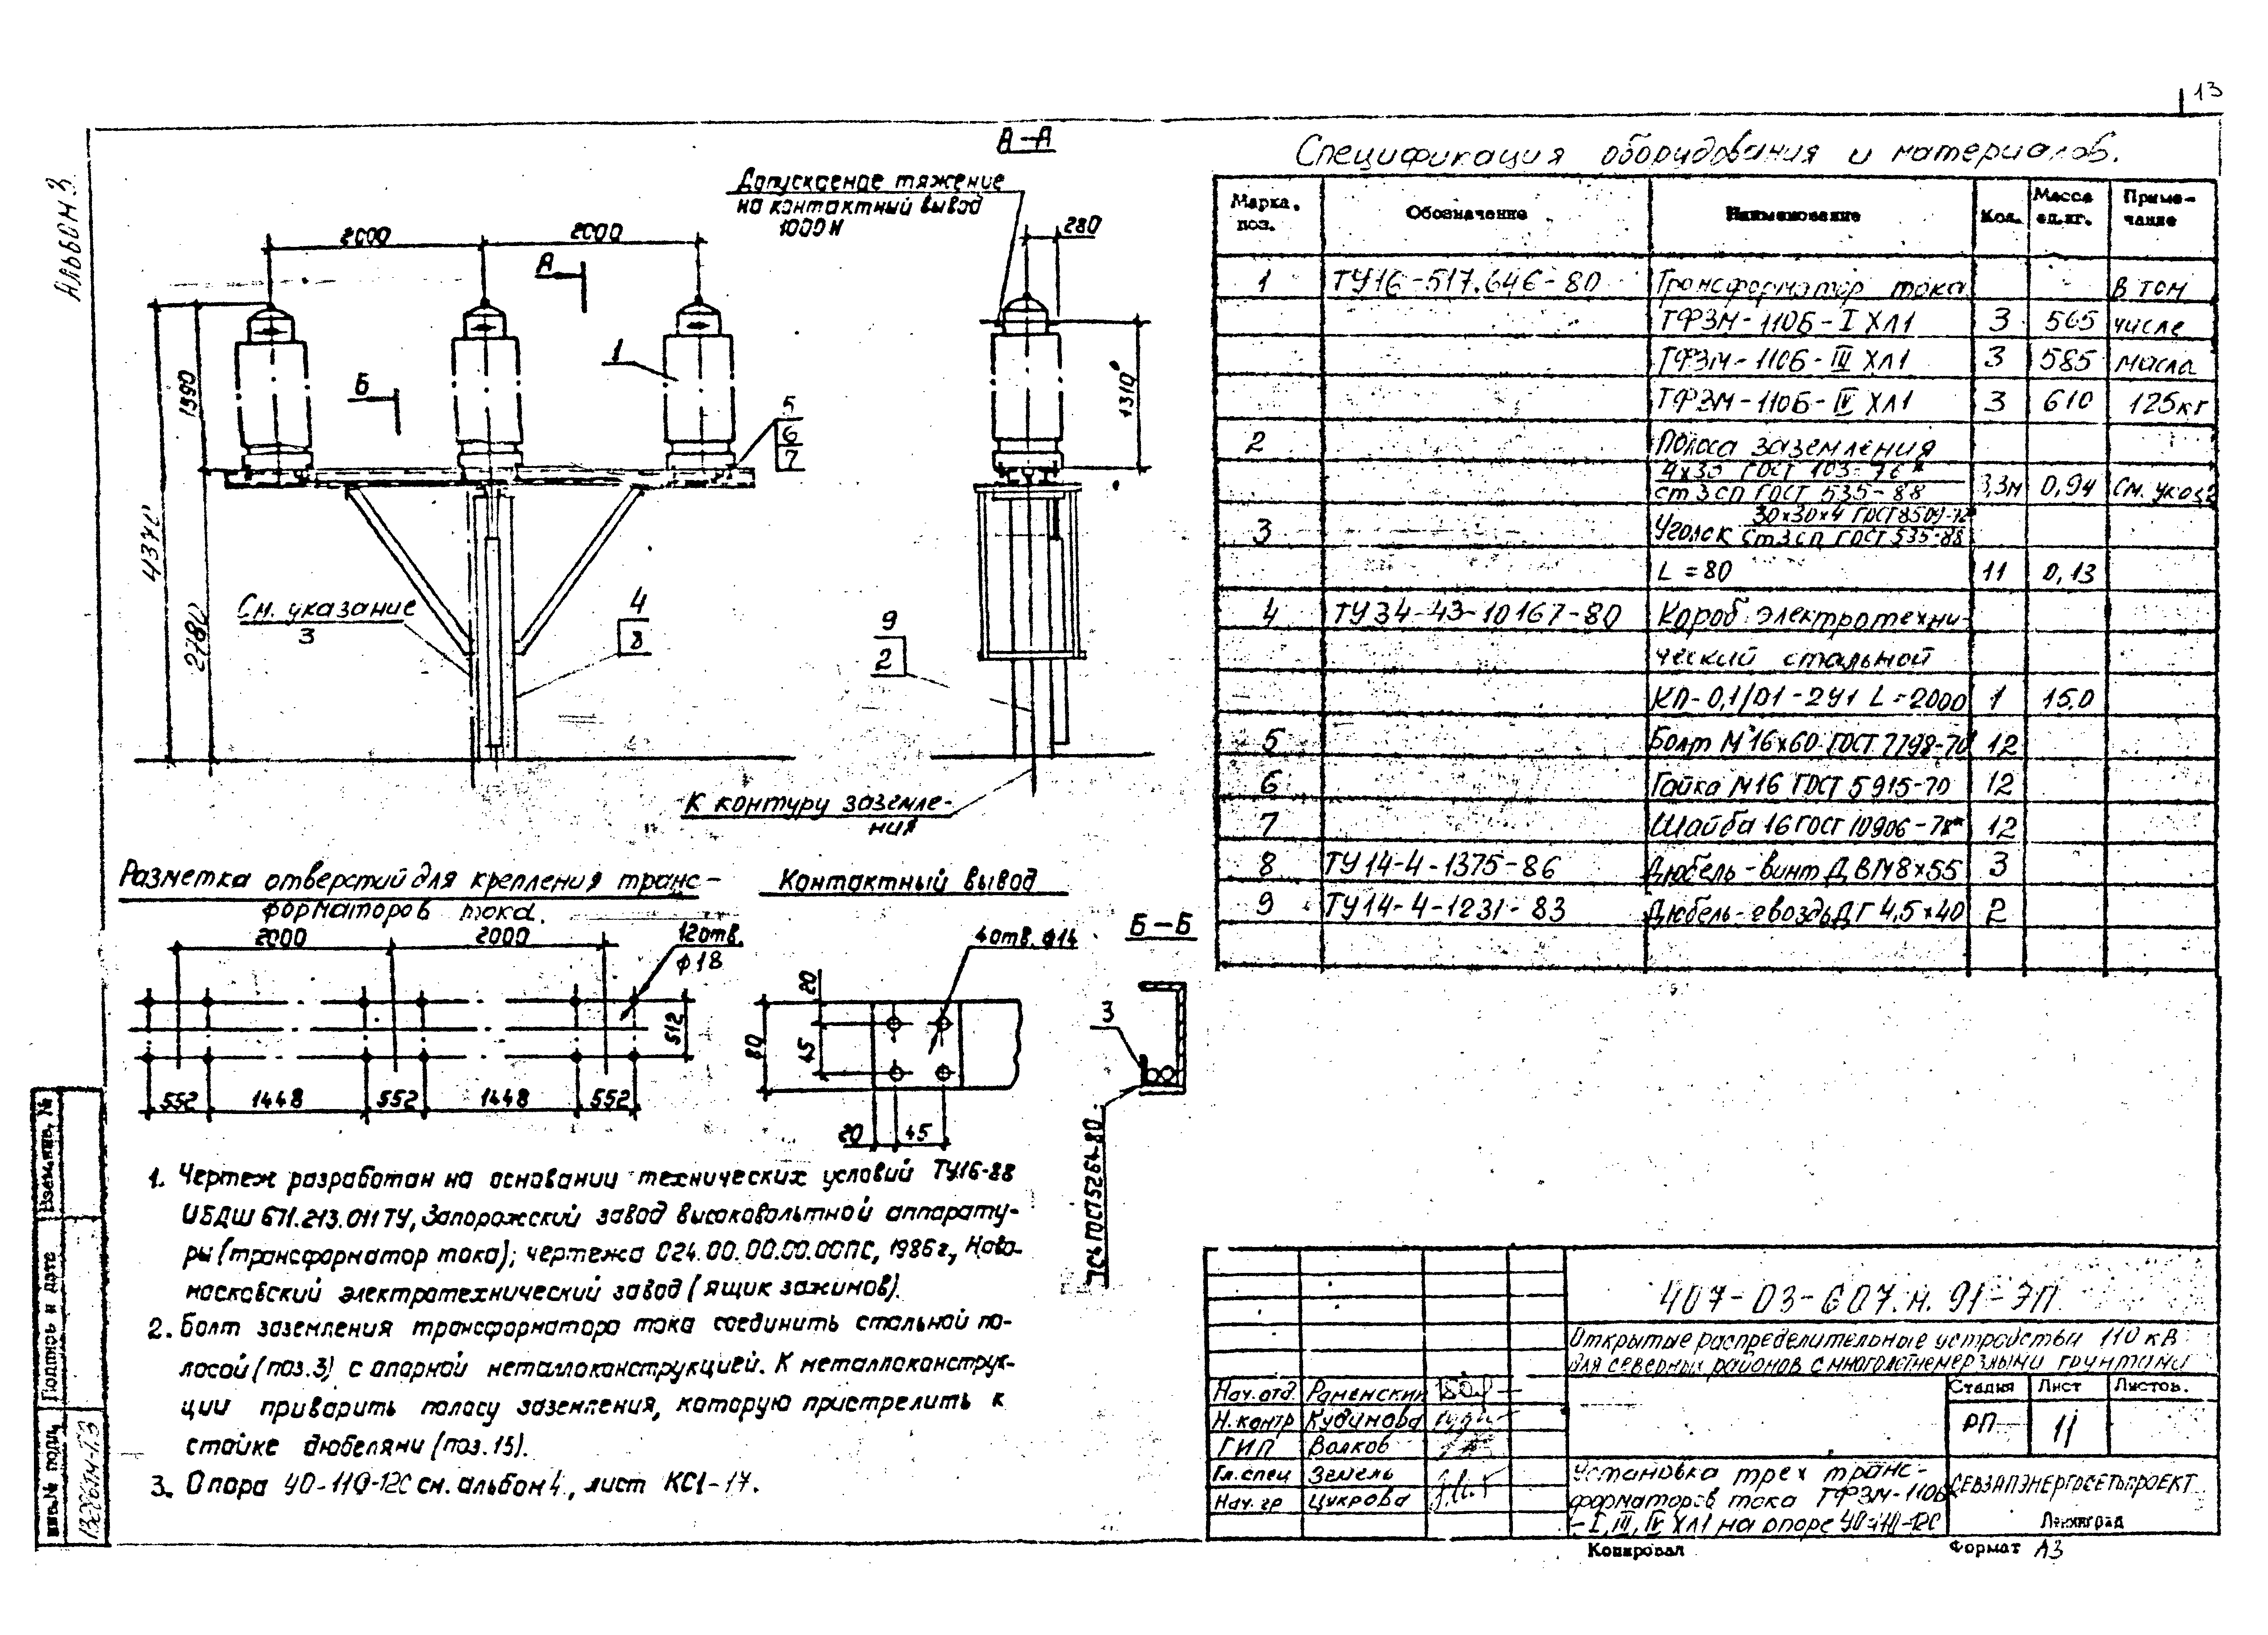 13
Альбом 3
А-А
Допускаемое тяжение
на контактный вывод
1000Н
2000
2000
280
А
Б
1
1590
4370
2780
1310*
5
6
7
См. указание
3
4
8
9
2
К контуру заземле-
ния
Разметка отверстий для крепления транс-
форматоров тока.
2000
2000
12отв.
ф18
512
552
1448
552
1448
552
Контактный вывод
4отв. ф14
20
45
80
20
45
Б-Б
3
ГОСТ5264-80
1. Чертеж разработан на основании технических условий ТУ16-88
ИБДШ 671.213.011ТУ, Запорожский завод высоковольтной аппарату-
ры (трансформатор тока); чертежа 024.00.00.00.00ПС, 1986г., Ново-
московский электротехнический завод (ящик зажимов).
2. Болт заземления трансформатора тока соединить стальной по-
лосой (поз.3) с опорной металлоконструкцией. К металлоконструк-
ции приварить полосу заземления, которую пристрелить к
стойке дюбелями (поз.15).
3. Опора УО-110-12С см. альбом 4, лист КС1-17.
Спецификация оборудования и материалов.
Марка, поз. Обозначение Наименование Кол. Масса ед.кг. Приме-чание
1 ТУ16-517.646-80 Трансформатор тока В том
ТФЗМ-110Б-I ХЛ1 3 565 числе
ТФЗМ-110Б-III ХЛ1 3 585 масла
ТФЗМ-110Б-IV ХЛ1 3 610 125кг
2 Полоса заземления
4х30 ГОСТ 103-76*
ст3сп ГОСТ 535-88 3,3м 0,94 См. указ2
3 Уголок 30х30х4 ГОСТ8509-72
Ст3сп ГОСТ535-88
L=80 11 0,13
4 ТУ34-43-10167-80 Короб электротехни-
ческий стальной
КП-0,1/01-2У1 L=2000 1 15,0
5 Болт М16х60 ГОСТ7798-70 12
6 Гайка М16 ГОСТ 5915-70 12
7 Шайба 16 ГОСТ 10906-78* 12
8 ТУ14-4-1375-86 Дюбель-винт ДВМ8х55 3
9 ТУ14-4-1231-83 Дюбель-гвоздь ДГ 4,5х40 2
407-03-607.м.91-ЭП
Открытые распределительные устройства 110 кВ
для северных районов с многолетнемерзлыми грунтами
Стадия Лист Листов.
РП 11
Нач.отд. Раменский
Н.контр Кудинова
ГИП Волков
Гл.спец Земель
Нач.гр Цукрова
Установка трех транс-
форматоров тока ТФЗМ-110Б
-I, III, IV ХЛ1 на опоре УО-110-12С
СЕВЗАПЭНЕРГОСЕТЬПРОЕКТ
Ленинград
Копировал
Формат А3
Взам.инв. №
Подпись и дата
Инв.№ подл.